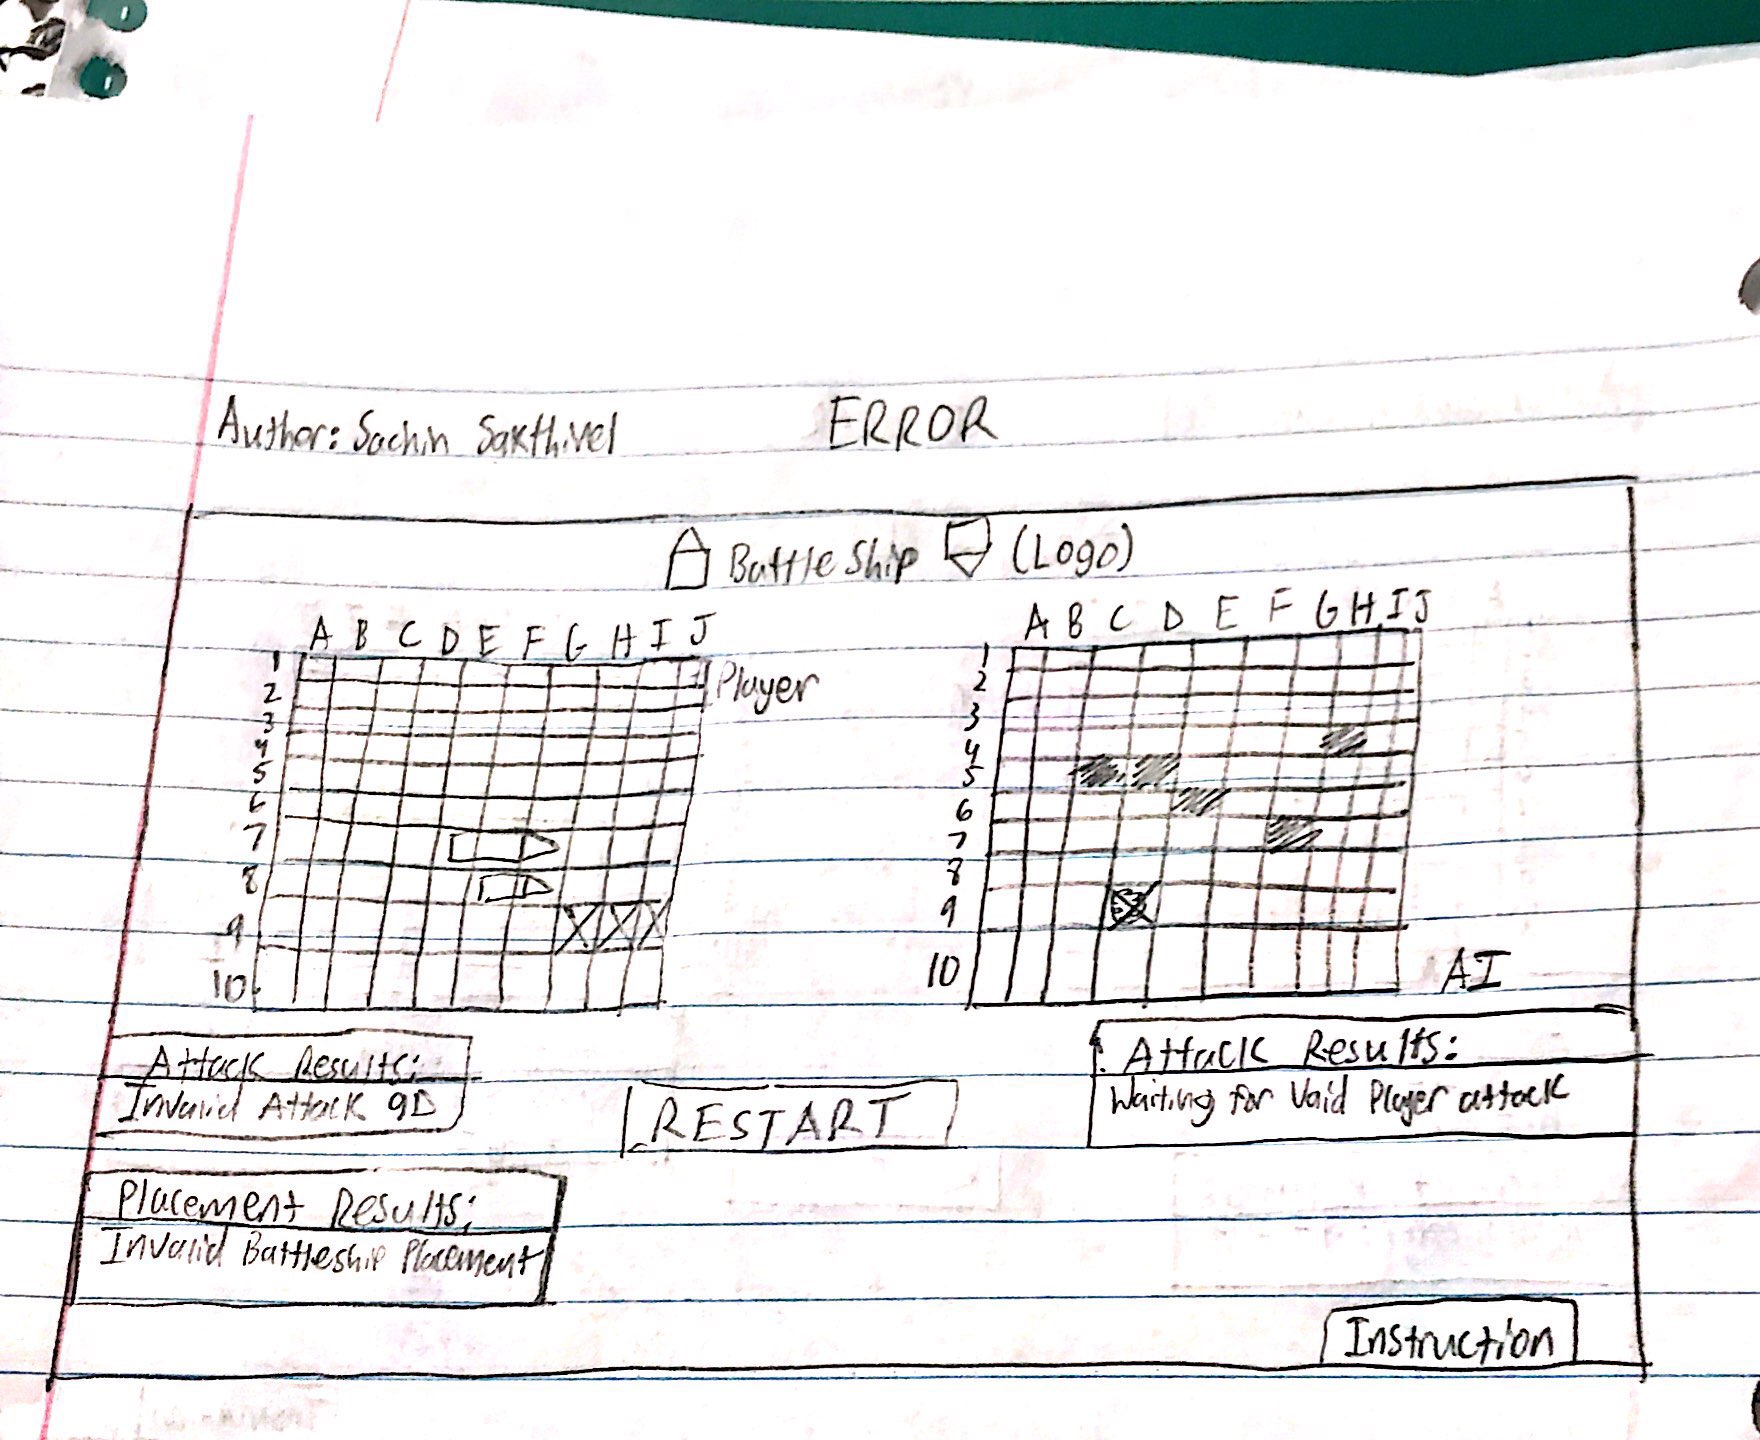 Author: Sachin Sakthivel
ERROR
BattleShip (Logo)
A B C D E F G H I J
1
2
3
4
5
6
7
8
9
10
Player
A B C D E F G H I J
1
2
3
4
5
6
7
8
9
10
AI
Attack Results:
Invalid Attack 9D
RESTART
Attack Results:
Waiting for Vaid Player attack
Placement Results:
Invalid Battleship Placement
Instruction